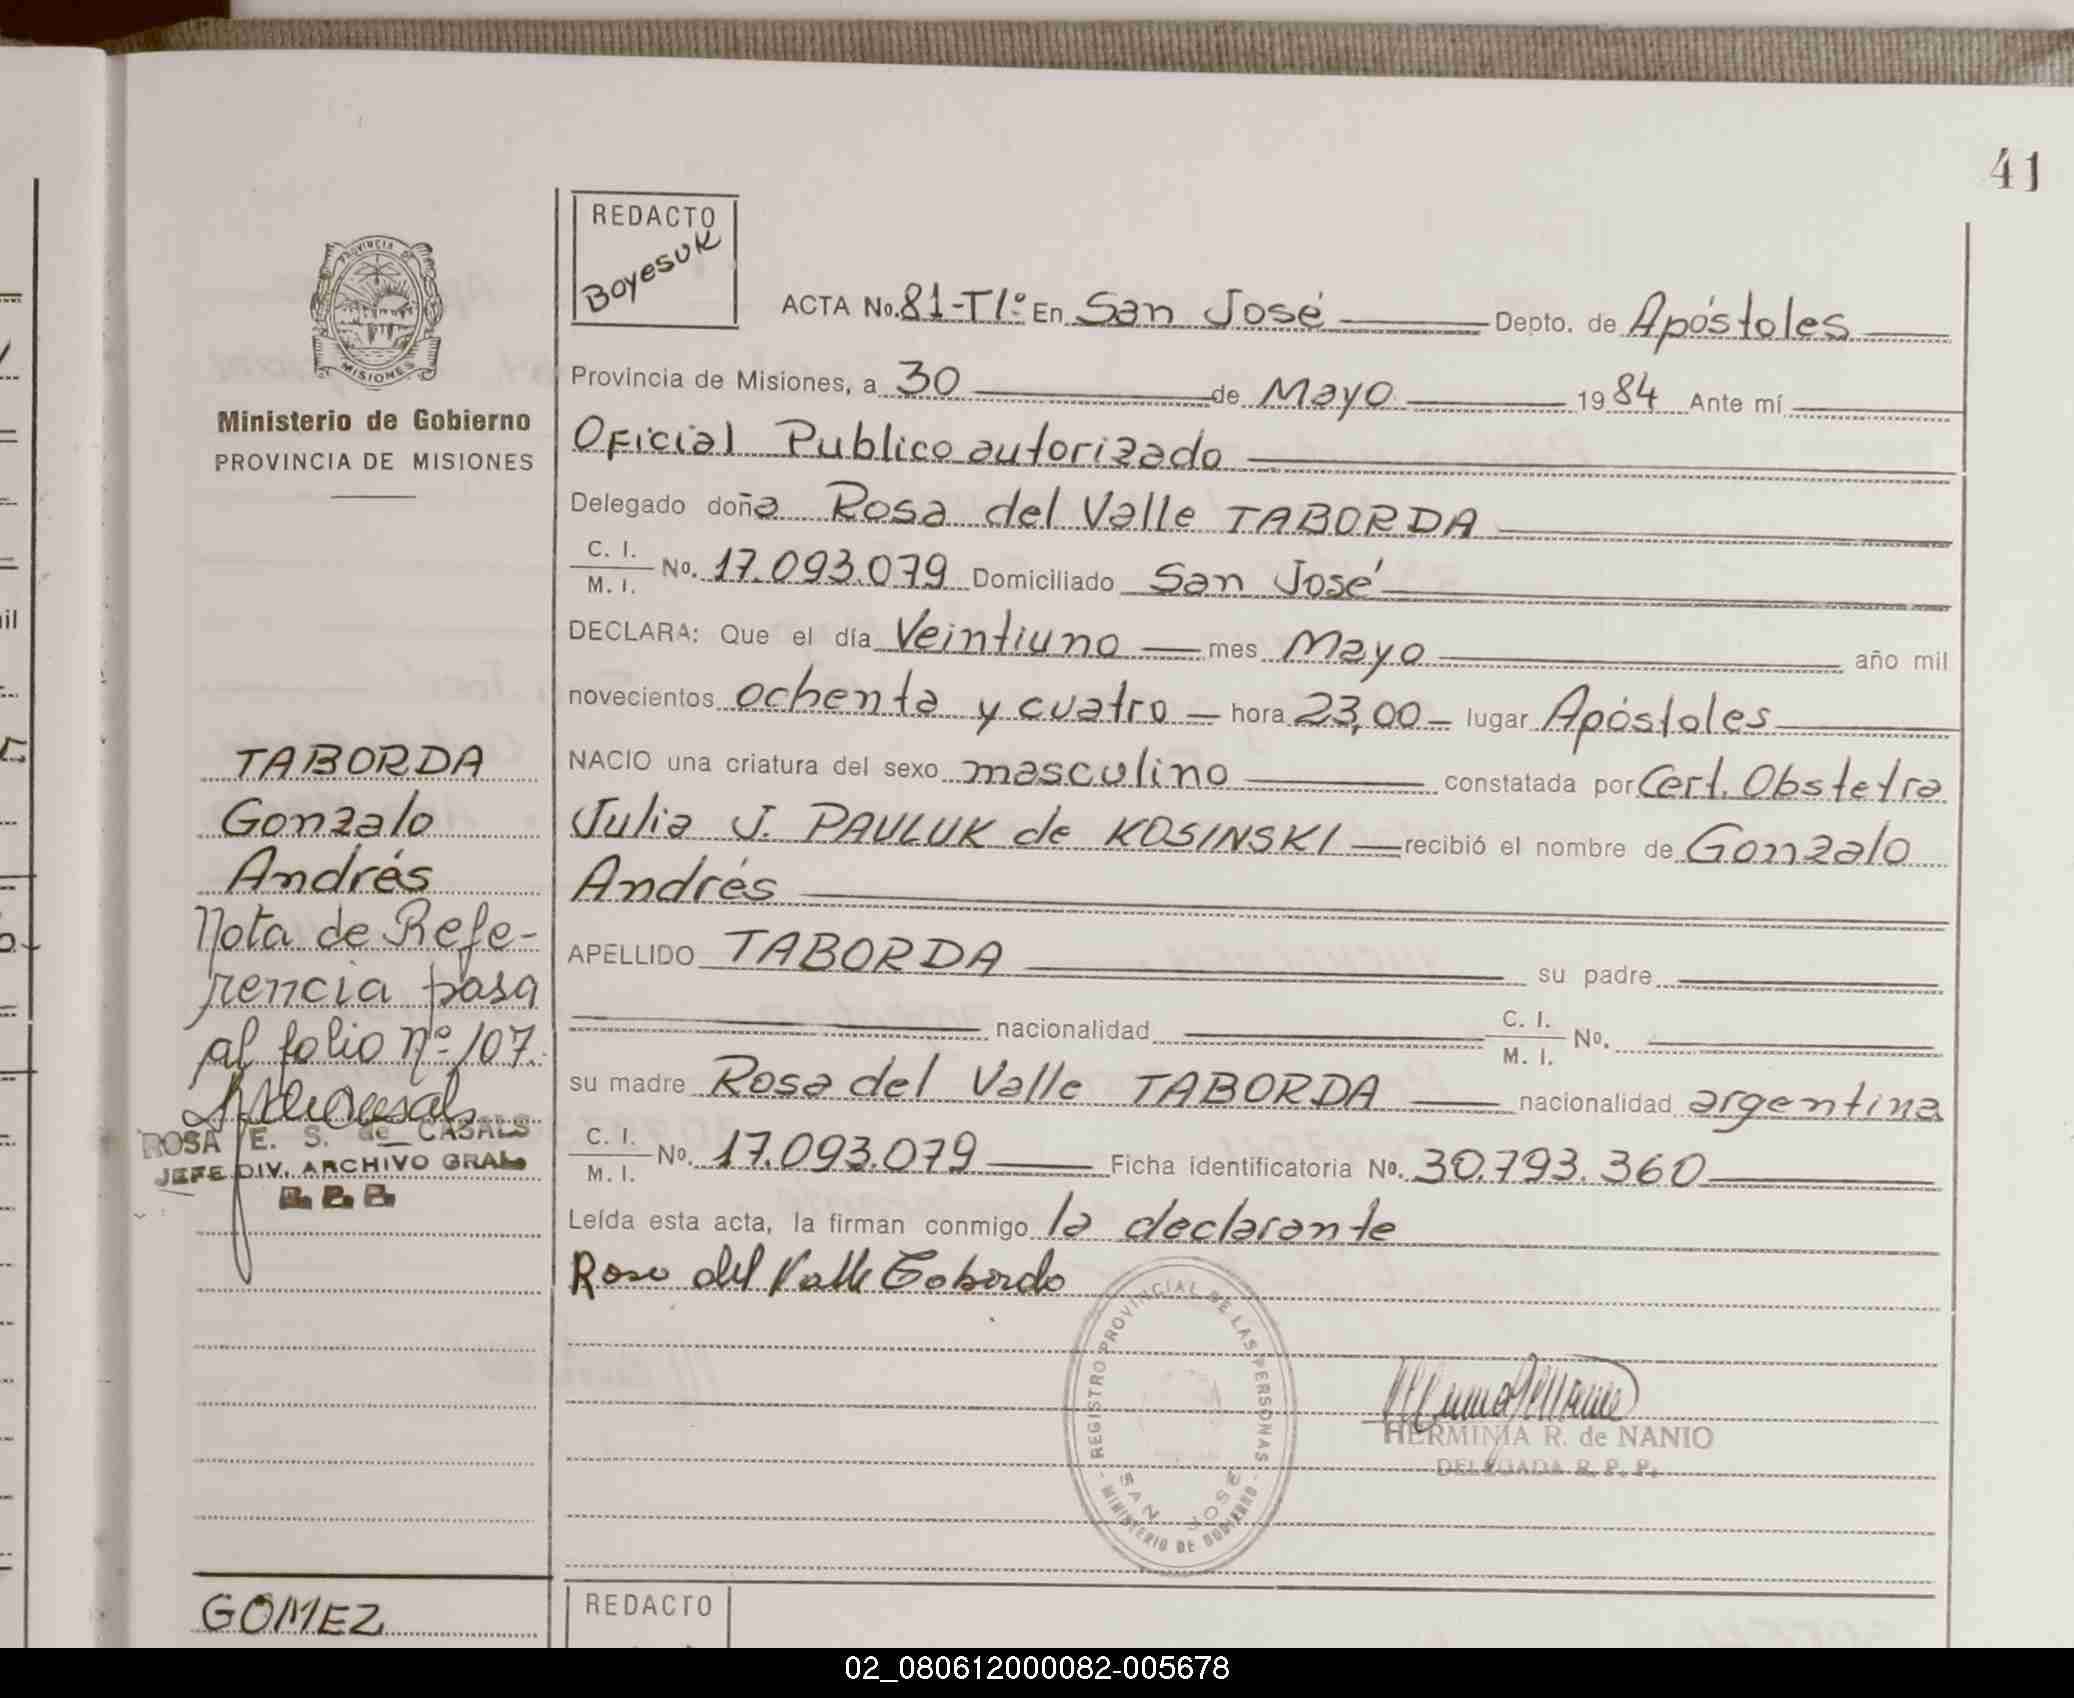 41
REDACTO
Boyesuk
PROVINCIA DE
MISIONES
Ministerio de Gobierno
PROVINCIA DE MISIONES
ACTA No. 81-T1º En San José Depto. de Apóstoles
Provincia de Misiones, a 30 de Mayo 1984 Ante mí
Oficial Publico autorizado
Delegado doña Rosa del Valle TABORDA
C. I.
M. I. No. 17.093.079 Domiciliado San José
DECLARA: Que el día Veintiuno mes Mayo año mil
novecientos ochenta y cuatro hora 23,00 lugar Apóstoles
NACIO una criatura del sexo masculino constatada por Cert. Obstetra
Julia J. PAULUK de KOSINSKI recibió el nombre de Gonzalo
Andrés
APELLIDO TABORDA su padre
nacionalidad C. I.
M. I. No.
su madre Rosa del Valle TABORDA nacionalidad argentina
C. I.
M. I. No. 17.093.079 Ficha identificatoria No. 30.793.360
Leída esta acta, la firman conmigo la declarante
Rosa del Valle Taborda
REGISTRO PROVINCIAL DE LAS PERSONAS
SAN JOSE
MINISTERIO DE GOBIERNO
HERMINIA R. de NANIO
DELEGADA R. P. P.
TABORDA
Gonzalo
Andrés
Nota de Refe-
rencia pasa
al folio nº 107.
ROSA E. S. de CASALS
JEFE DIV. ARCHIVO GRAL
GOMEZ
REDACTO
02_080612000082-005678